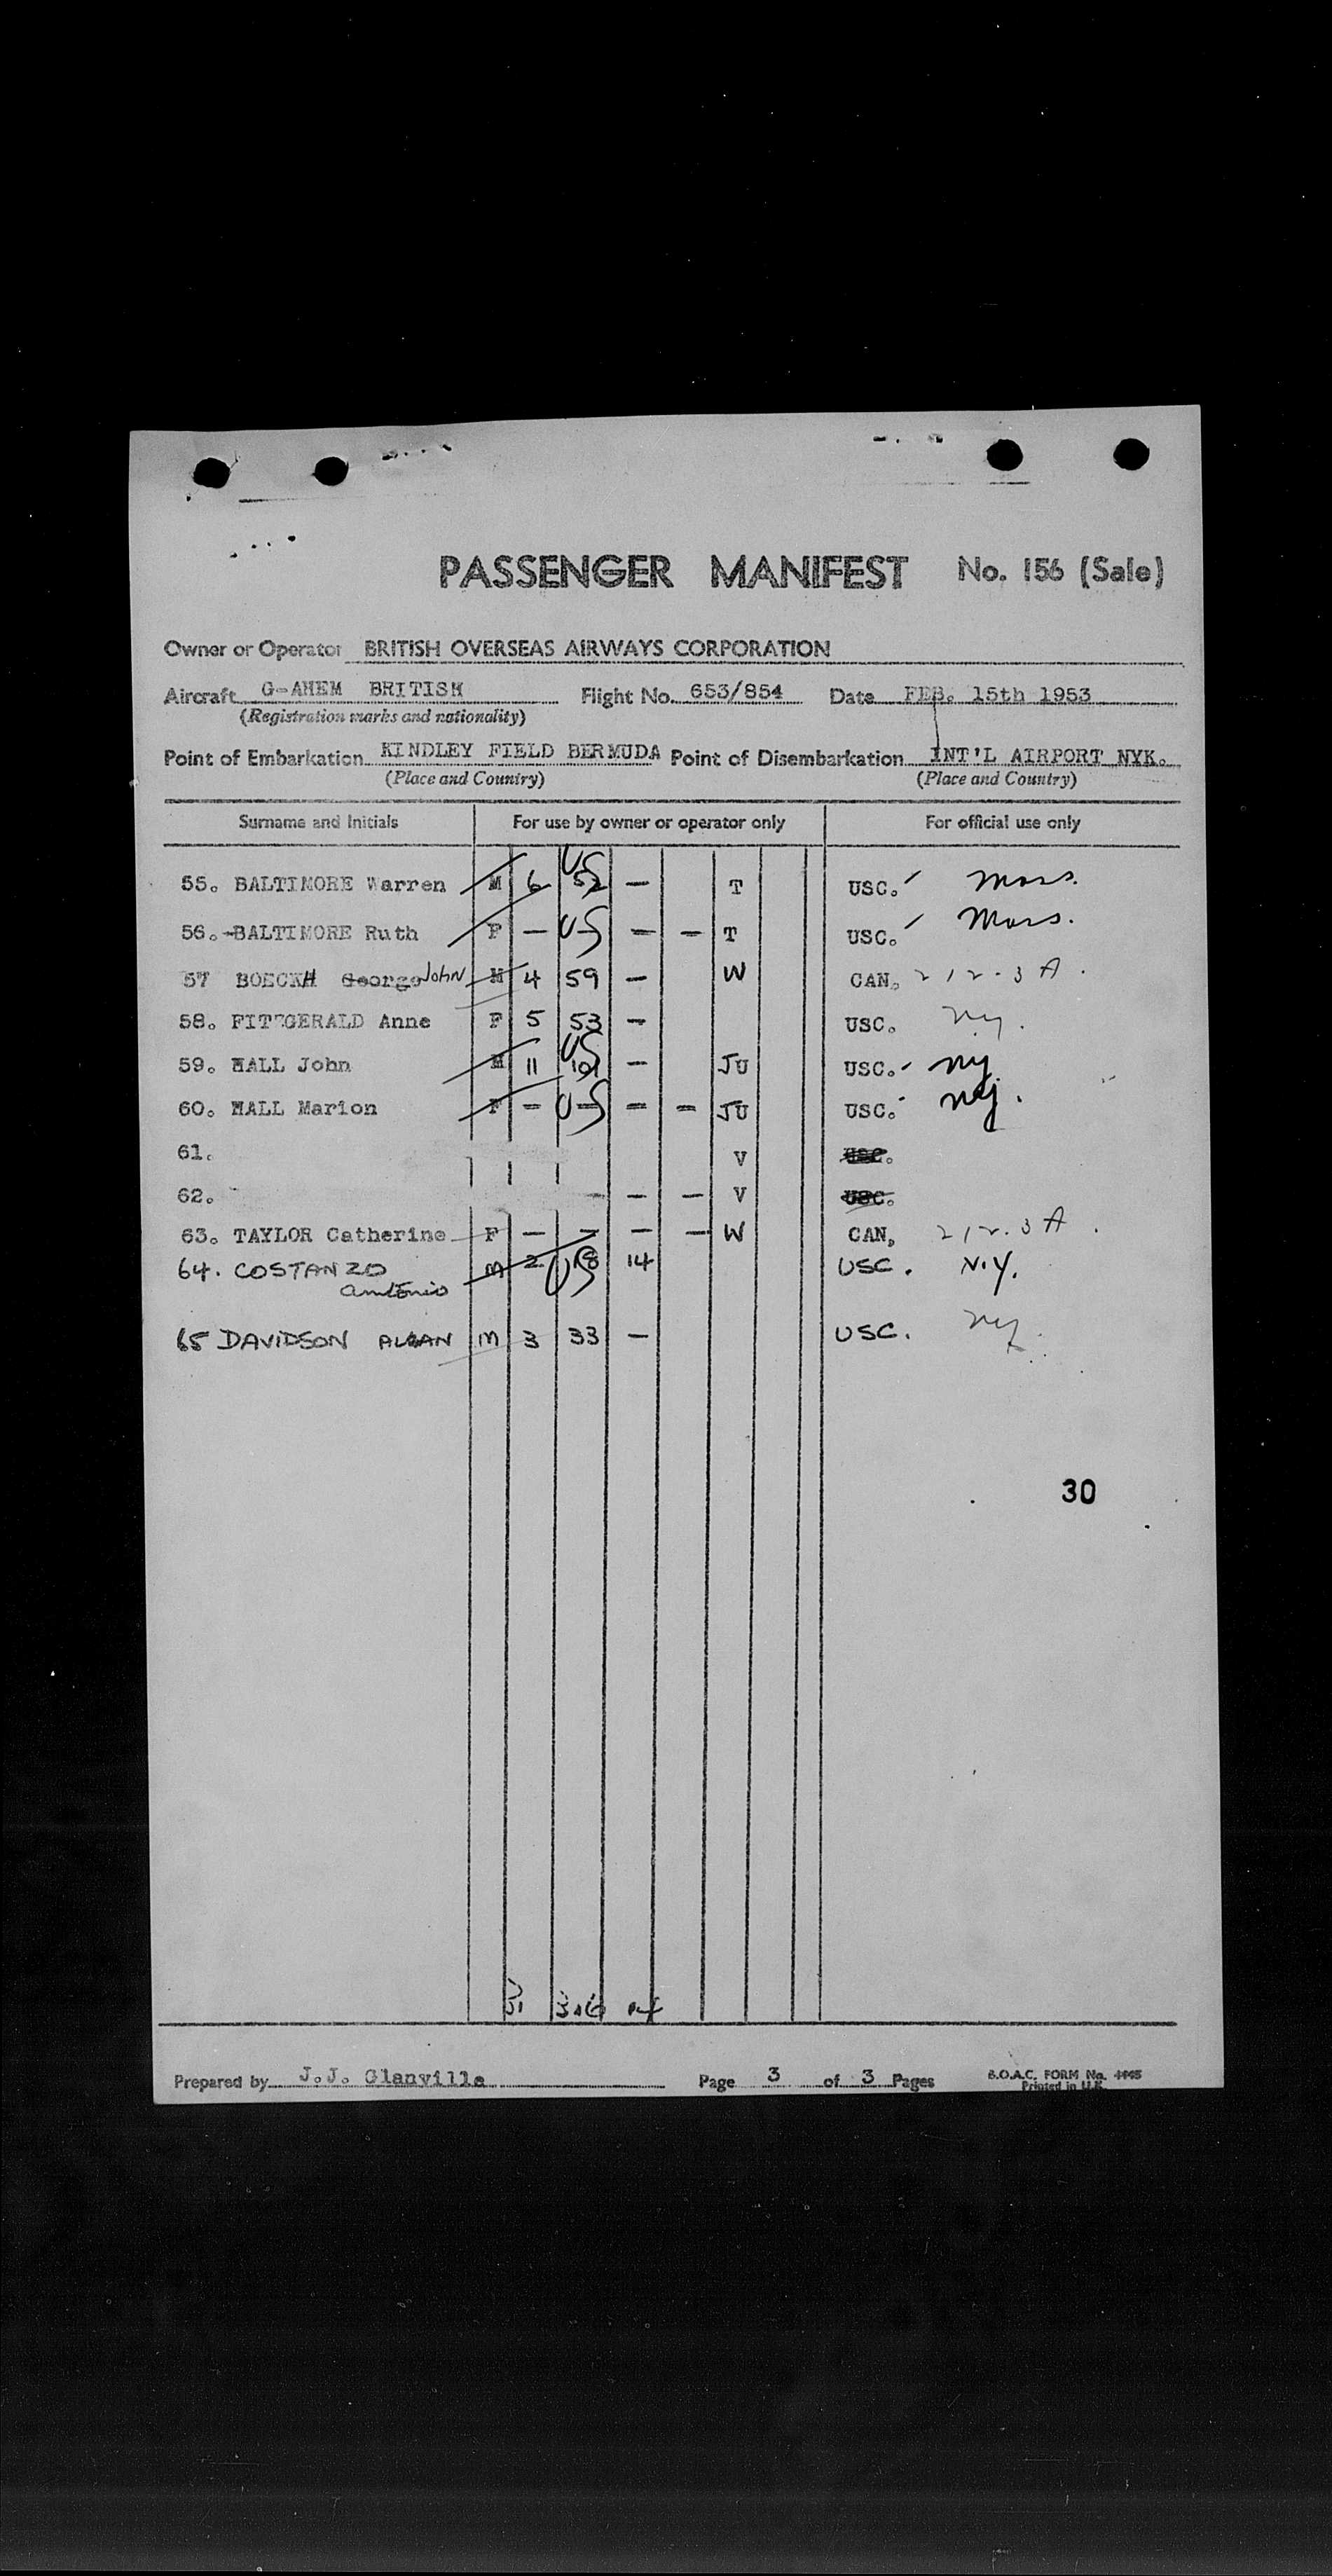 PASSENGER MANIFEST No. 156 (Sale)
Owner or Operator BRITISH OVERSEAS AIRWAYS CORPORATION
Aircraft G-AHEM BRITISH Flight No. 653/854 Date FEB. 15th 1953
(Registration marks and nationality)
Point of Embarkation KINDLEY FIELD BERMUDA Point of Disembarkation INT'L AIRPORT NYK.
(Place and Country) (Place and Country)
Surname and Initials For use by owner or operator only For official use only
55. BALTIMORE Warren M 6 52 US — T USC. Mass.
56. BALTIMORE Ruth F — US — — T USC. Mass.
57 BOECKH George John M 4 59 — W CAN. 212.3A.
58. FITZGERALD Anne F 5 53 — USC. NY.
59. HALL John M 11 101 US — JU USC. NJ
60. HALL Marion F — US — — JU USC. NJ.
61. V USC.
62. — — — V USC.
63. TAYLOR Catherine F — — — — W CAN. 212.3A.
64. COSTANZO M 2 US 14 USC. N.Y.
Antonio
65 DAVIDSON M 3 33 — USC. NY.
30
51
Prepared by J.J. Glanville Page 3 of 3 Pages B.O.A.C. FORM No.
Printed in U.K.